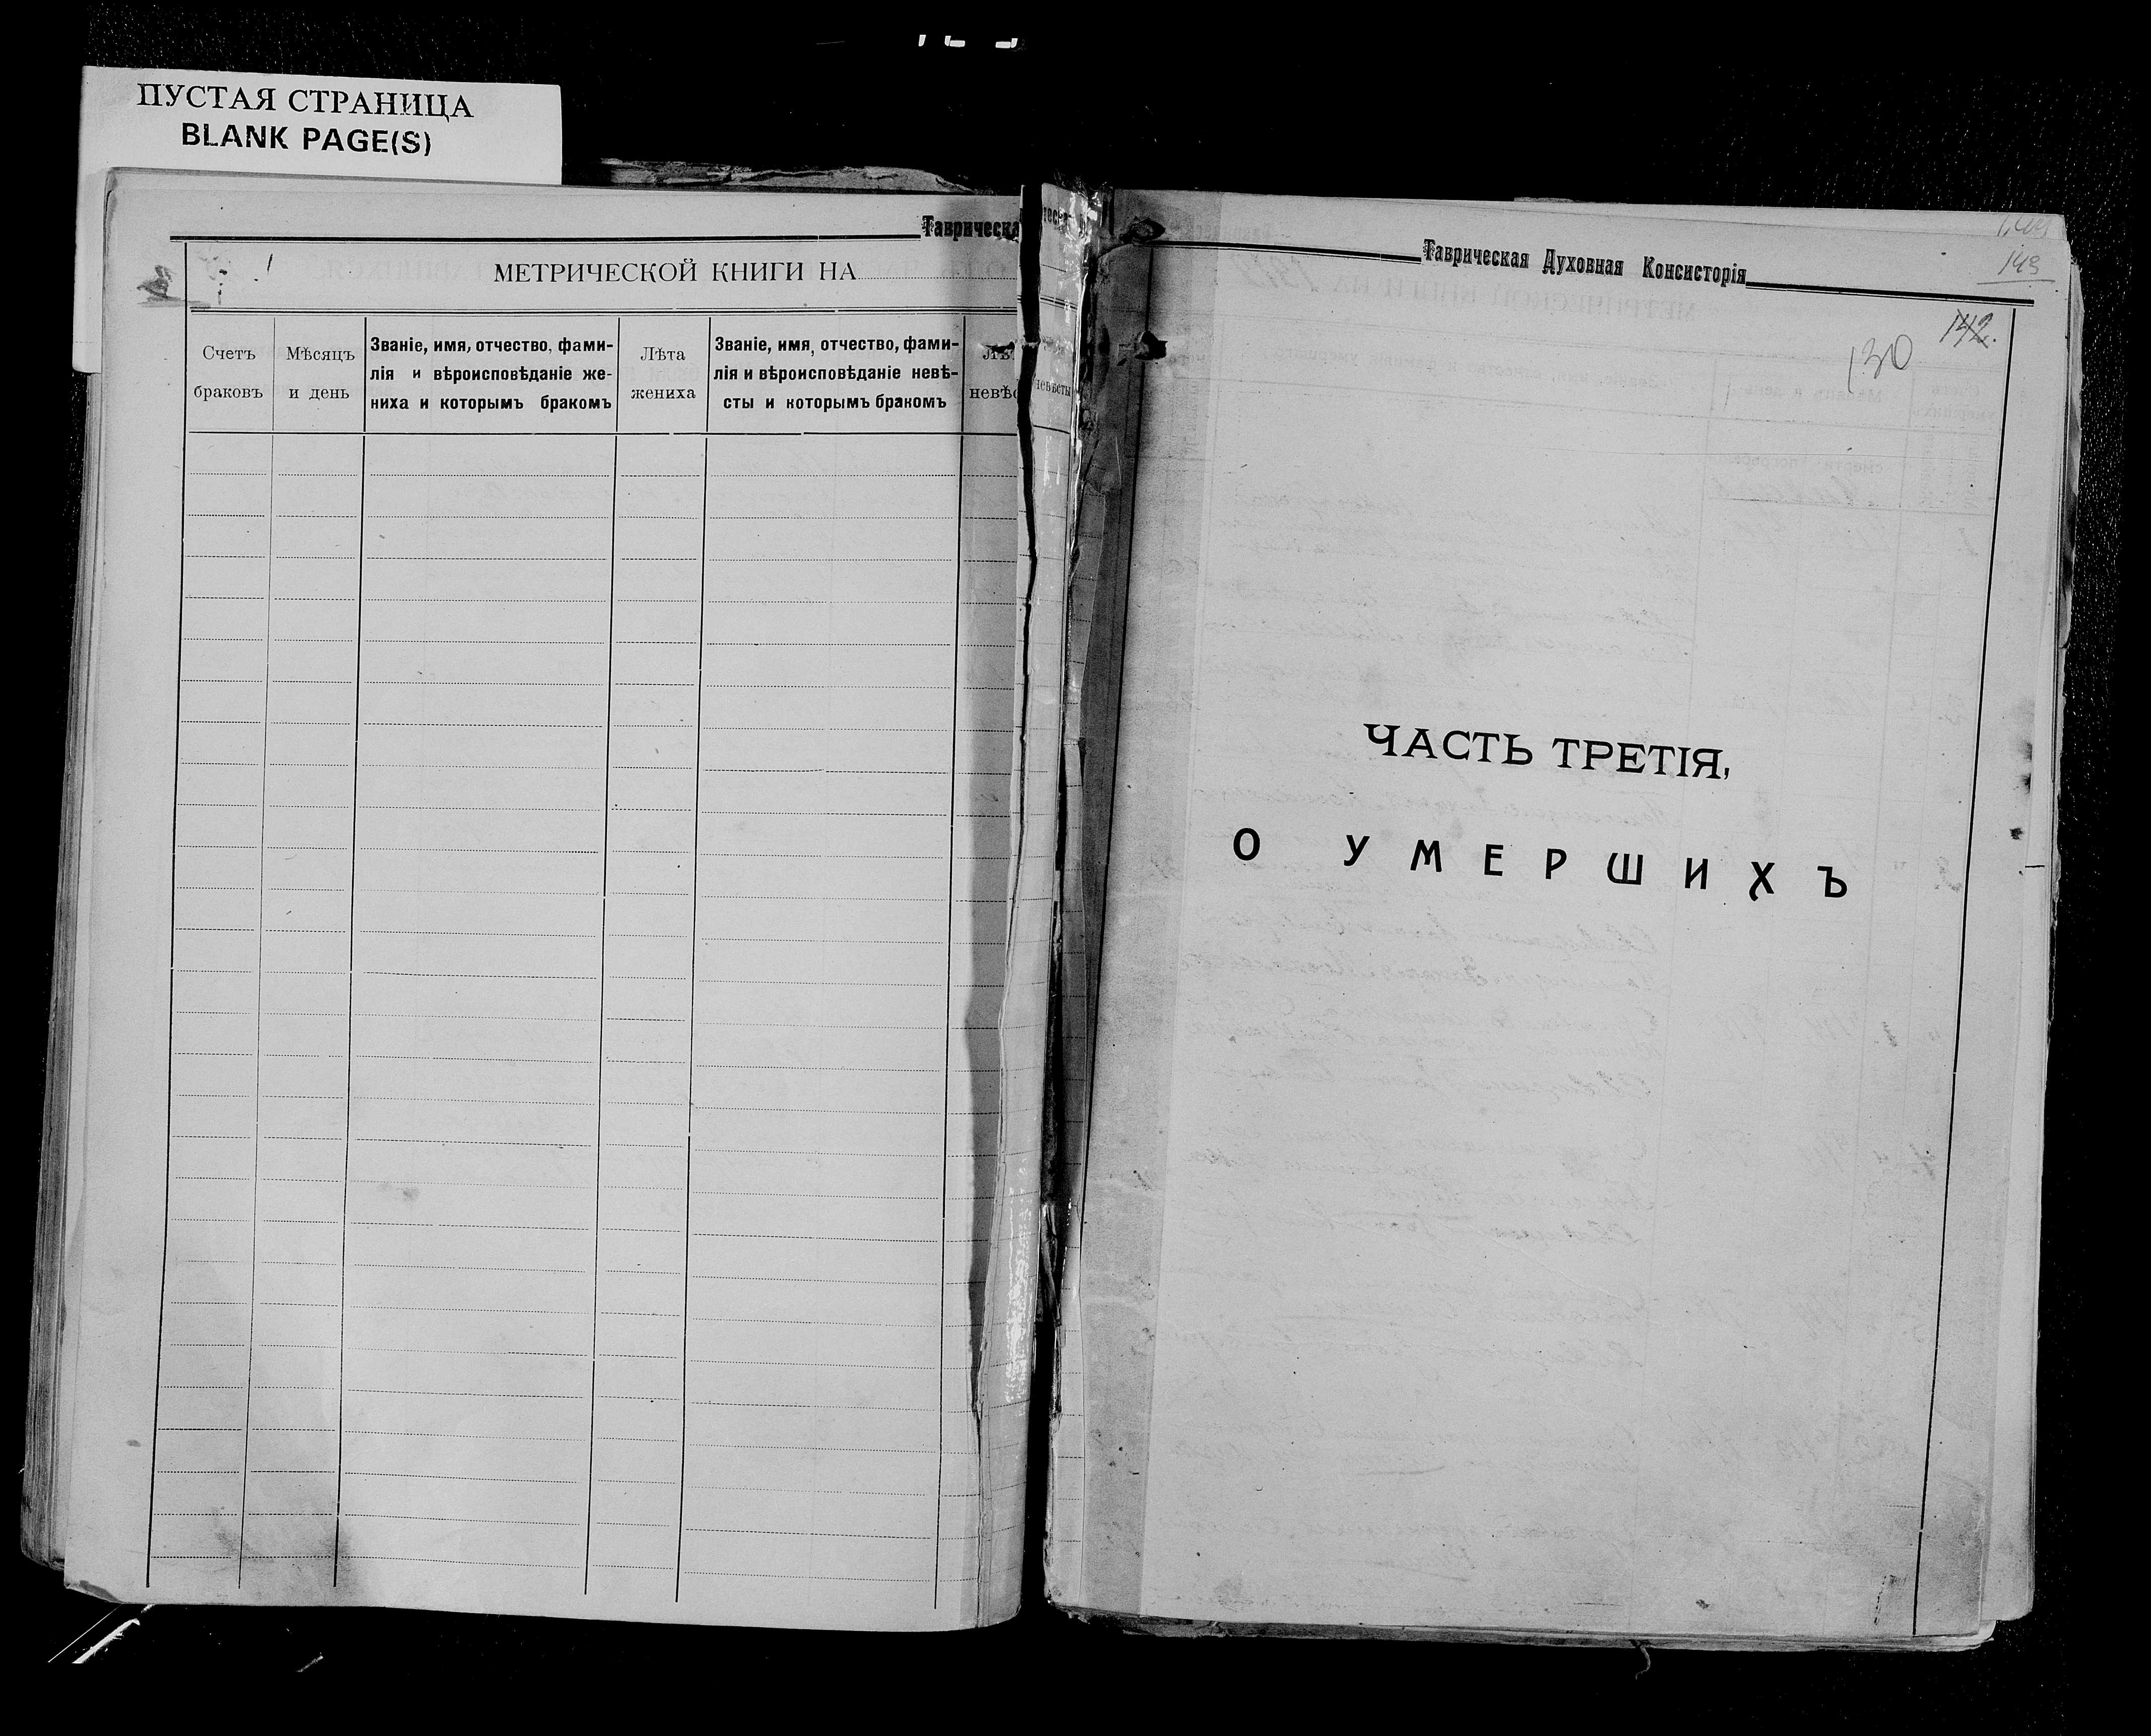 ПУСТАЯ СТРАНИЦА
BLANK PAGE(S)
Таврическа
МЕТРИЧЕСКОЙ КНИГИ НА
Счетъ
браковъ
Мѣсяцъ
и день
Званіе, имя, отчество, фами-
лія и вѣроисповѣданіе же-
ниха и которымъ бракомъ
Лѣта
жениха
Званіе, имя, отчество, фами-
лія и вѣроисповѣданіе невѣ-
сты и которымъ бракомъ
Лѣт
невѣс
невѣсты
Таврическая Духовная Консисторія
143
142.
130
ЧАСТЬ ТРЕТІЯ,
О УМЕРШИХЪ